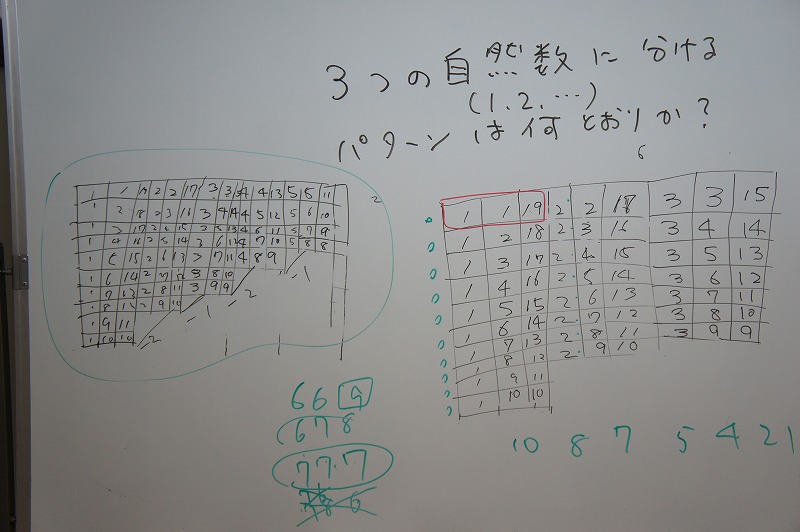 3つの自然数に分ける
(1.2.…)
パターンは何とおりか?
6
1 1 19 2 2 17 3 3 15 4 4 13 5 5 11
1 2 18 2 3 16 3 4 14 4 5 12 5 6 10
1 3 17 2 4 15 3 5 13 4 6 11 5 7 9
1 4 16 2 5 14 3 6 12 4 7 10 5 8 8
1 5 15 2 6 13 3 7 11 4 8 9
1 6 14 2 7 12 3 8 10
1 7 13 2 8 11 3 9 9
1 8 12 2 9 10
1 9 11
1 10 10
1 1 19 2 2 18 3 3 15
1 2 18 2 3 16 3 4 14
1 3 17 2 4 15 3 5 13
1 4 16 2 5 14 3 6 12
1 5 15 2 6 13 3 7 11
1 6 14 2 7 12 3 8 10
1 7 13 2 8 11 3 9 9
1 8 12 2 9 10
1 9 11
1 10 10
6 6 9
6 7 8
7 7 7
10 8 7 5 4 2 1